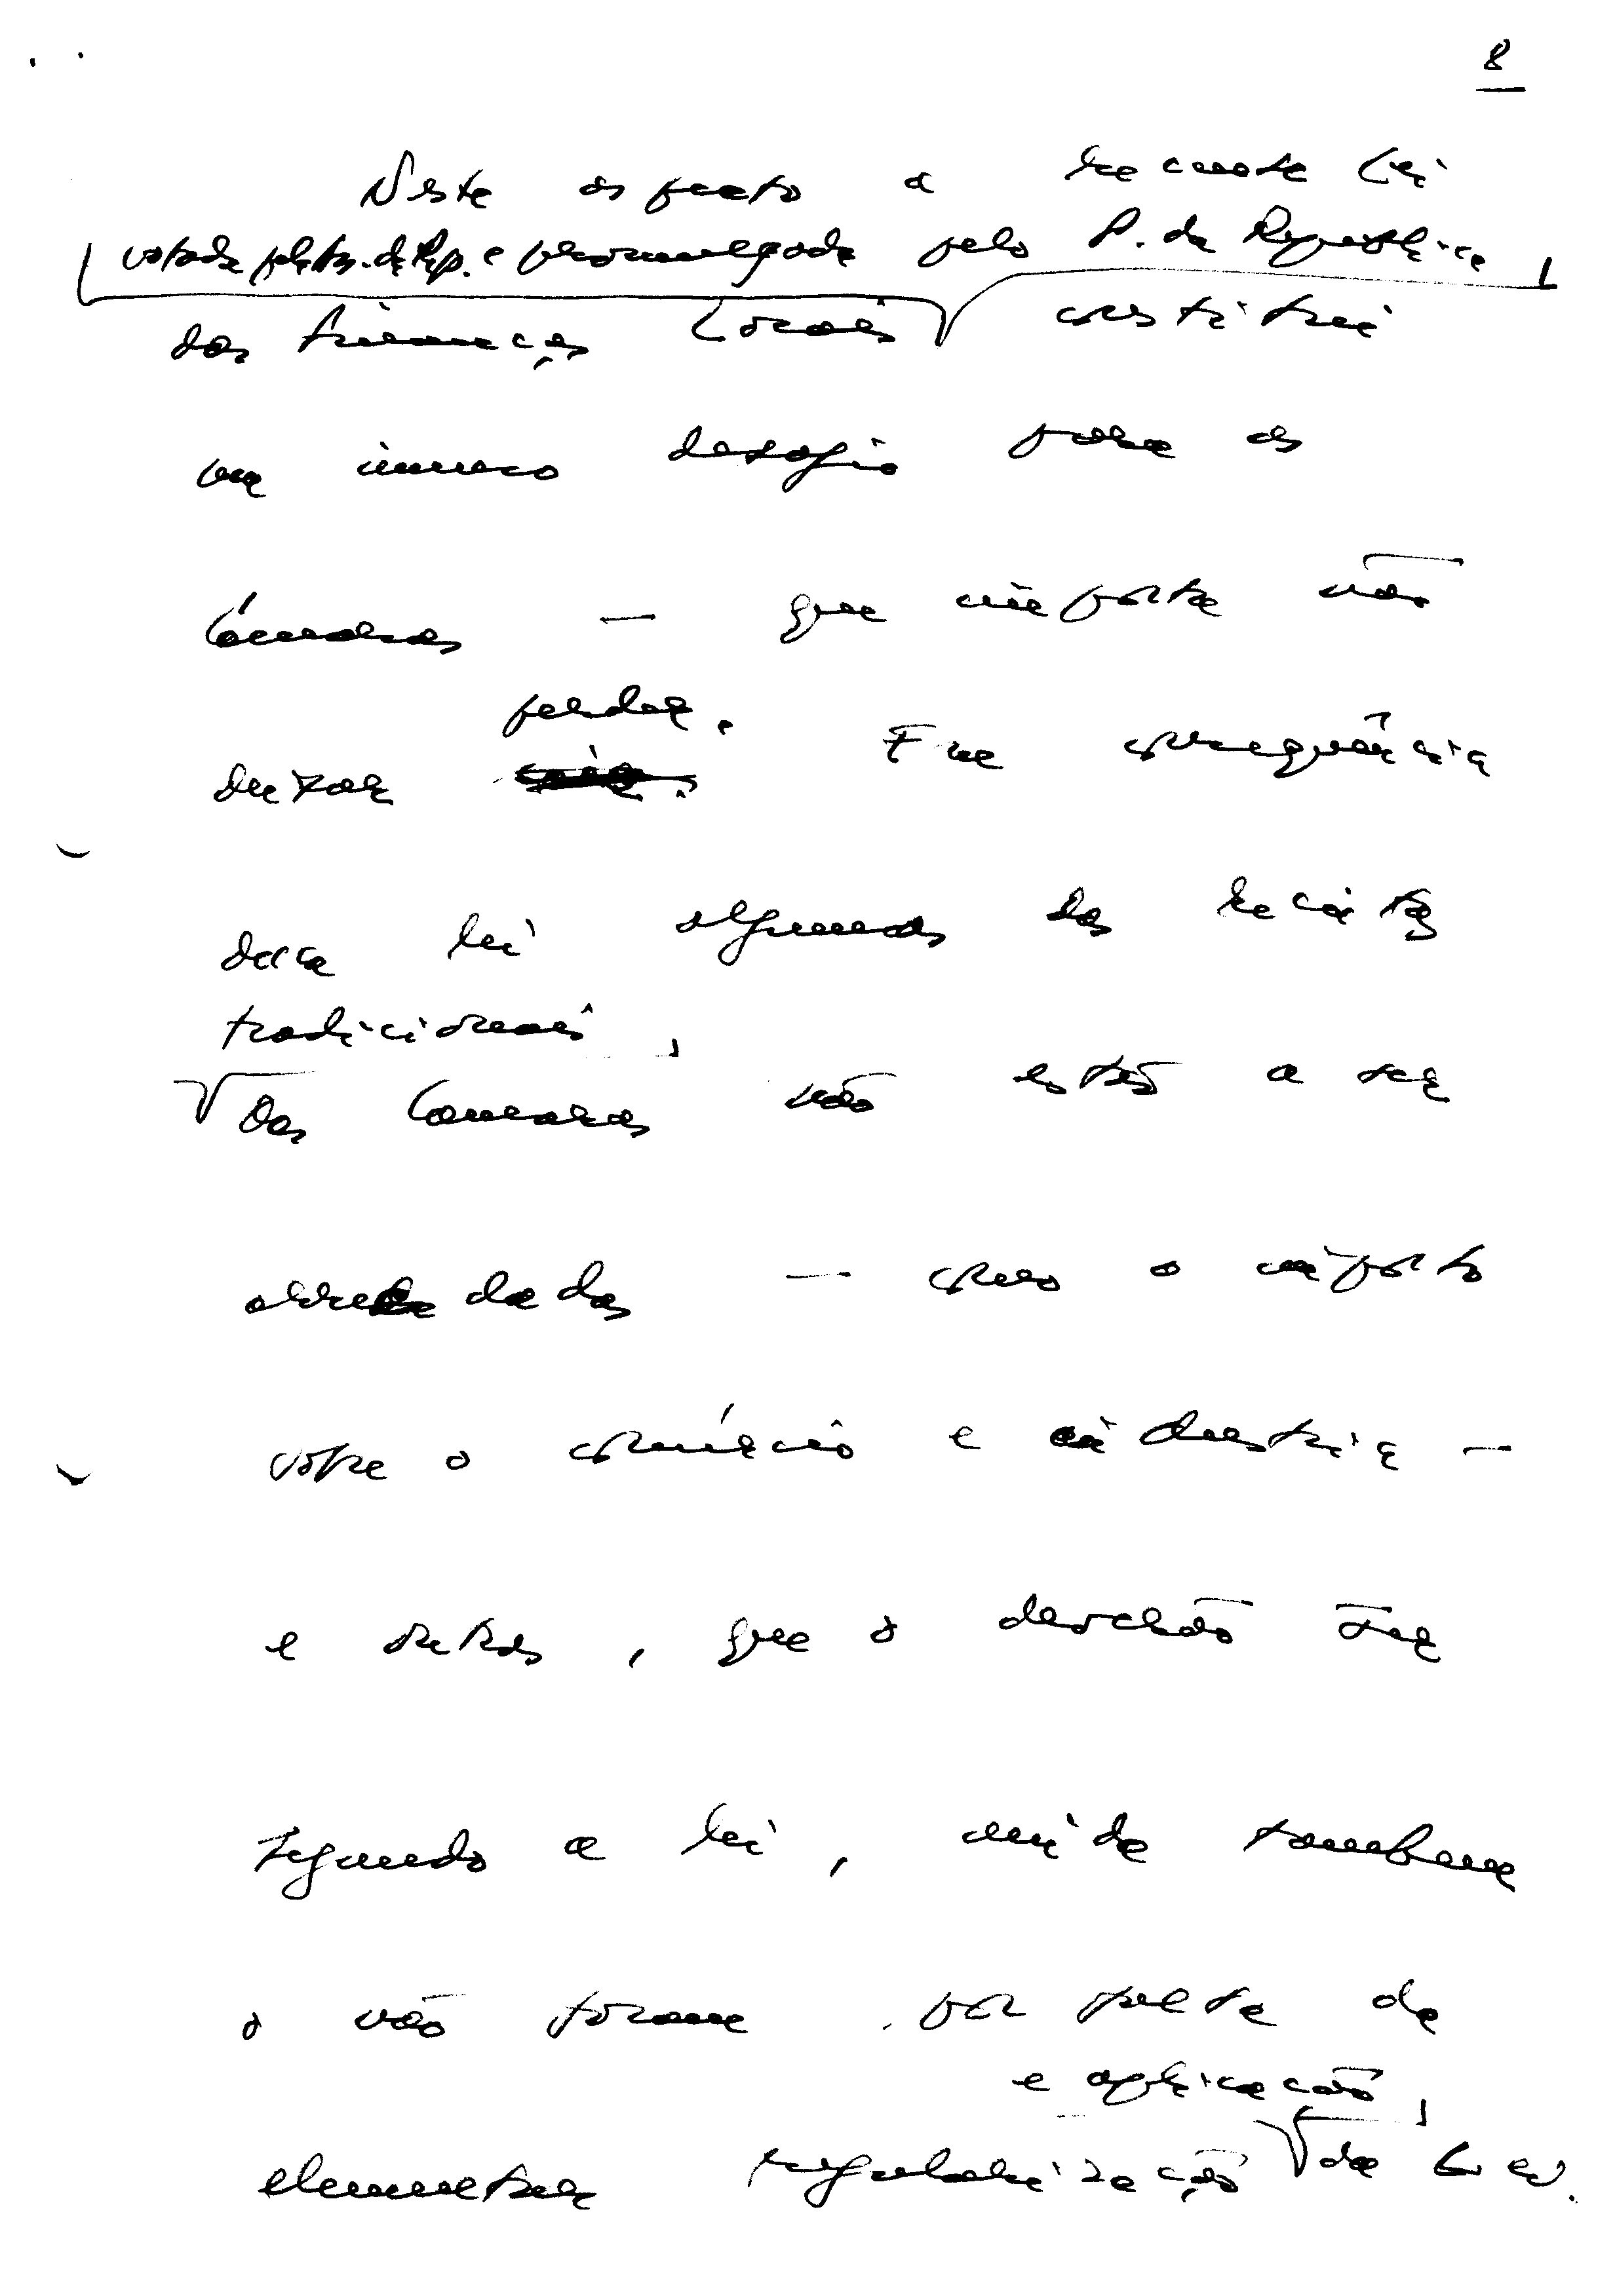 8
Neste aspecto a recente Lei
votada pela As. da Rep. e promulgada pelo P. da República
das Finanças Locais constitui
um imenso desafio para as
Câmaras — que importa não
perder.
deixar Em consequência
dessa lei algumas das receitas
tradicionais
das Camaras não estão a ser
arrecadadas — como o imposto
sobre o comércio e indústria —
e outras, que o deverão ser
segundo a lei, ainda tambem
o não foram por falta de
e aplicação
elementar regularização da Lei.